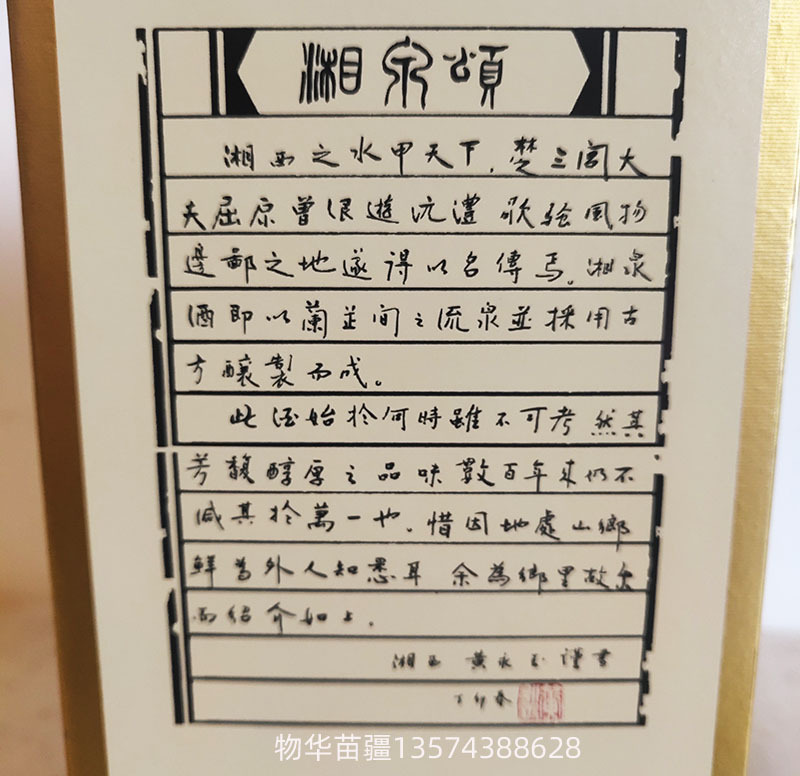 湘泉頌
湘西之水甲天下，楚三閭大
夫屈原曾浪遊沅澧歌繪風物
邊鄙之地遂得以名傳焉。湘泉
酒即以蘭芷間之流泉並採用古
方釀製而成。
此酒始於何時雖不可考然其
芳馥醇厚之品味數百年來仍不
減其於萬一也．惜因地處山鄉
鮮為外人知悉耳 余為鄉里故
而紹介如上．
湘西 黃永玉謹書
丁卯春
物华苗疆13574388628